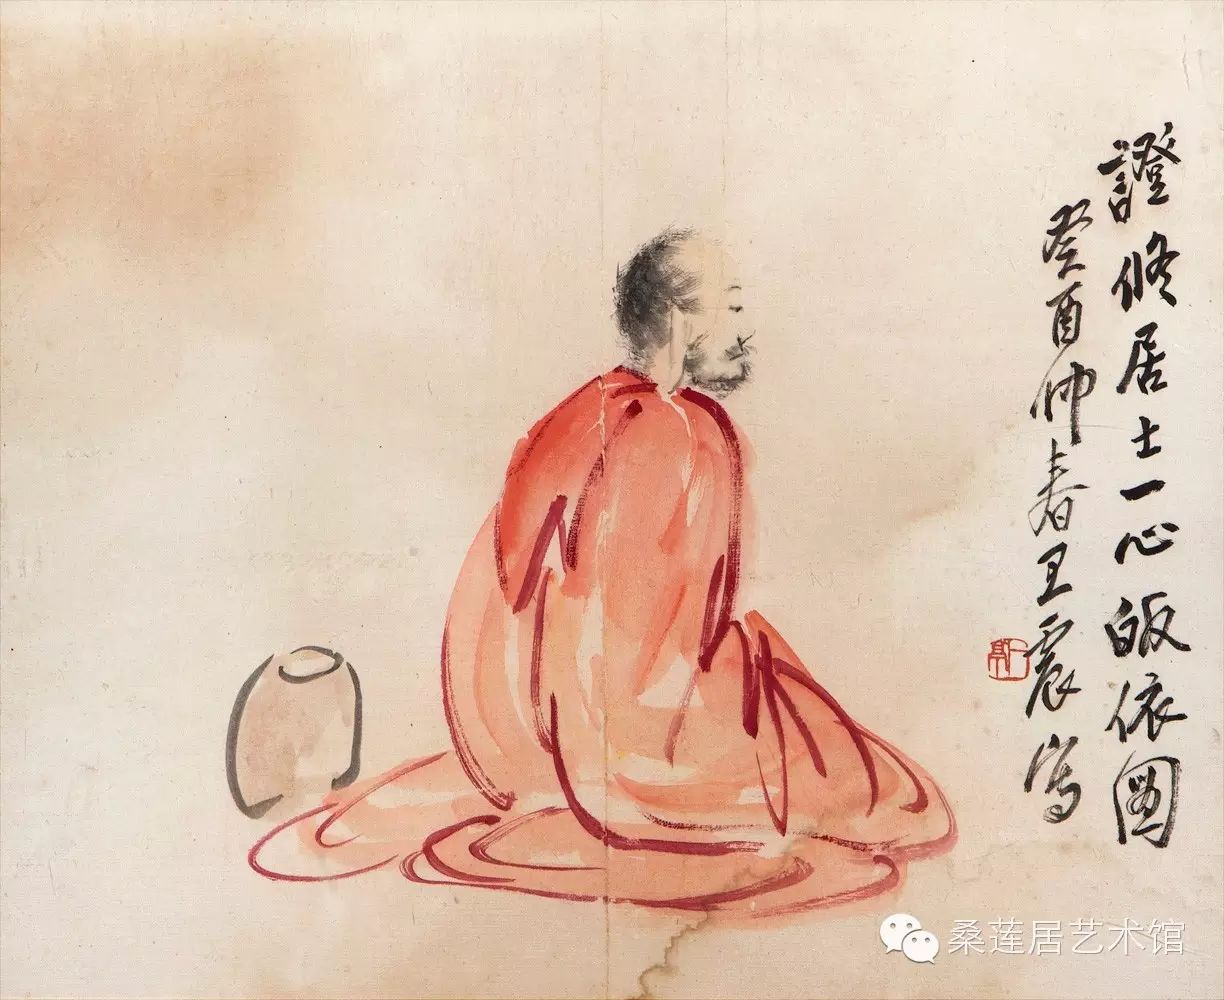 證修居士一心皈依圖
癸酉仲春王震寫
一亭
桑莲居艺术馆